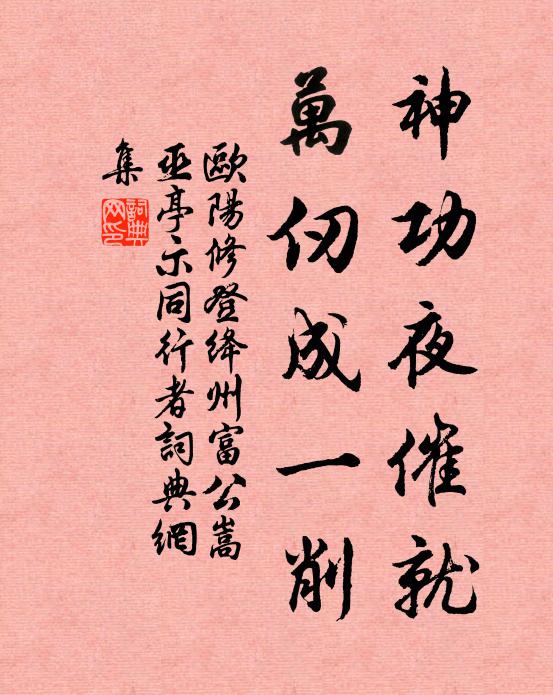 神功夜催就
萬仞成一削
歐陽修登絳州富公嵩
巫亭示同行者詞典網
集
詞典
网印